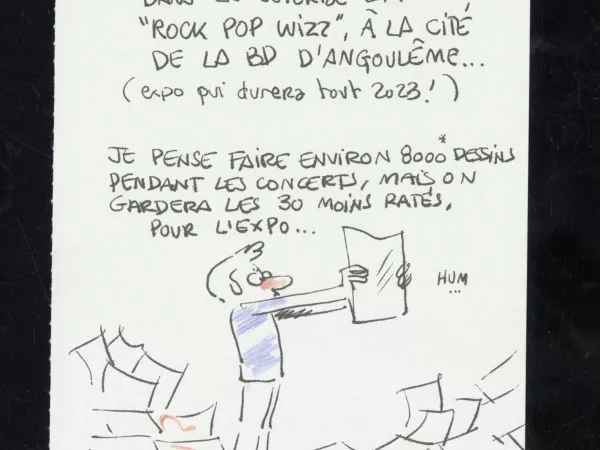 "ROCK POP WIZZ", À LA CITÉ
DE LA BD D'ANGOULÊME...
(expo qui durera tout 2023!)
JE PENSE FAIRE ENVIRON 8000* DESSINS
PENDANT LES CONCERTS, MAIS ON
GARDERA LES 30 MOINS RATÉS,
POUR L'EXPO...
HUM
...